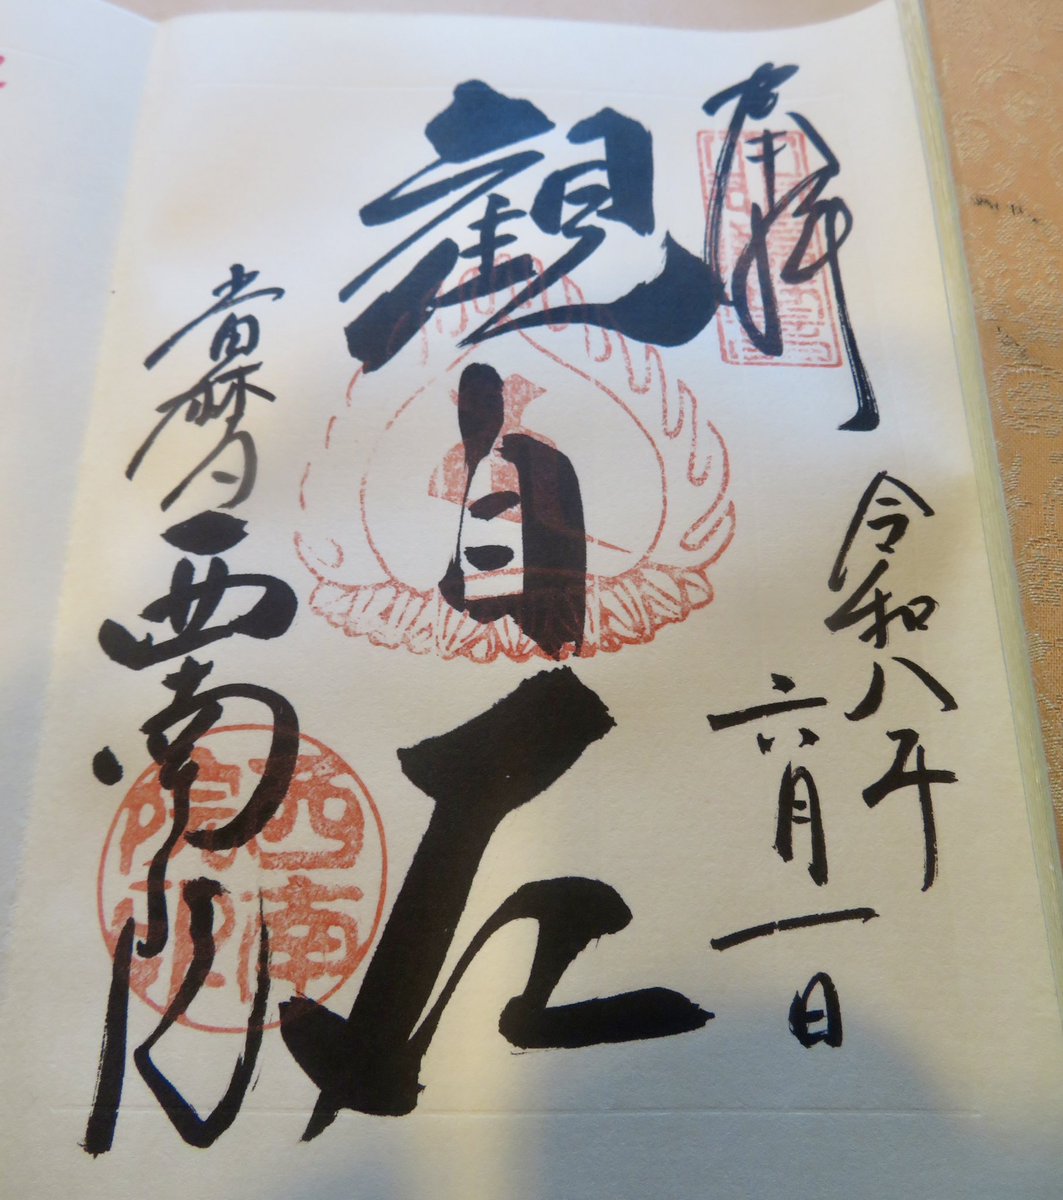 奉拝
令和八年
六月一日
観自在
當麻寺
西南院
西南院印